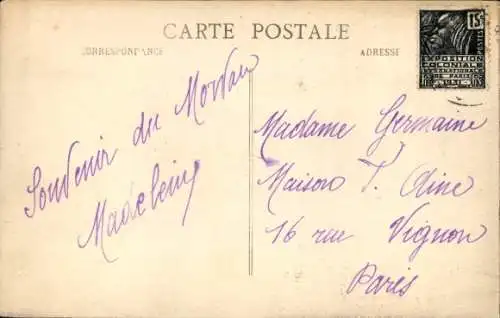 CARTE POSTALE
CORRESPONDANCE
ADRESSE
15c
POSTES
EXPOSITION
COLONIALE
INTERNATIONALE
DE PARIS
1931
Souvenir du Morvan
Madeleine
Madame Germaine
Maison T. Oline
16 rue Vignon
Paris